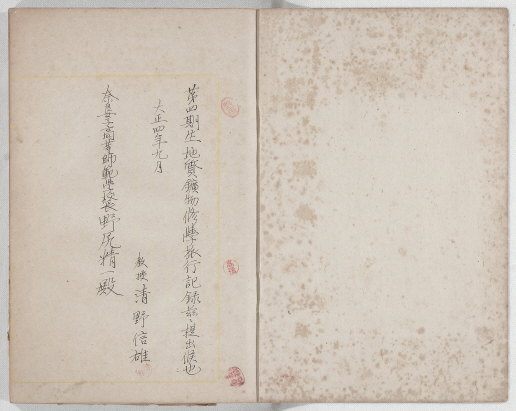 第四期生地質鑛物修學旅行記録玆ニ提出候也
大正四年九月
教授 清野信雄
奈良女高等師範學校長野尻精一殿